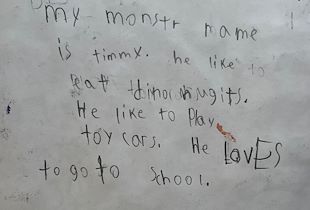 my monstr name
is timmy. he like to
eat dinor nugits.
He like to Play
toy cars. He LOVES
to go to school.